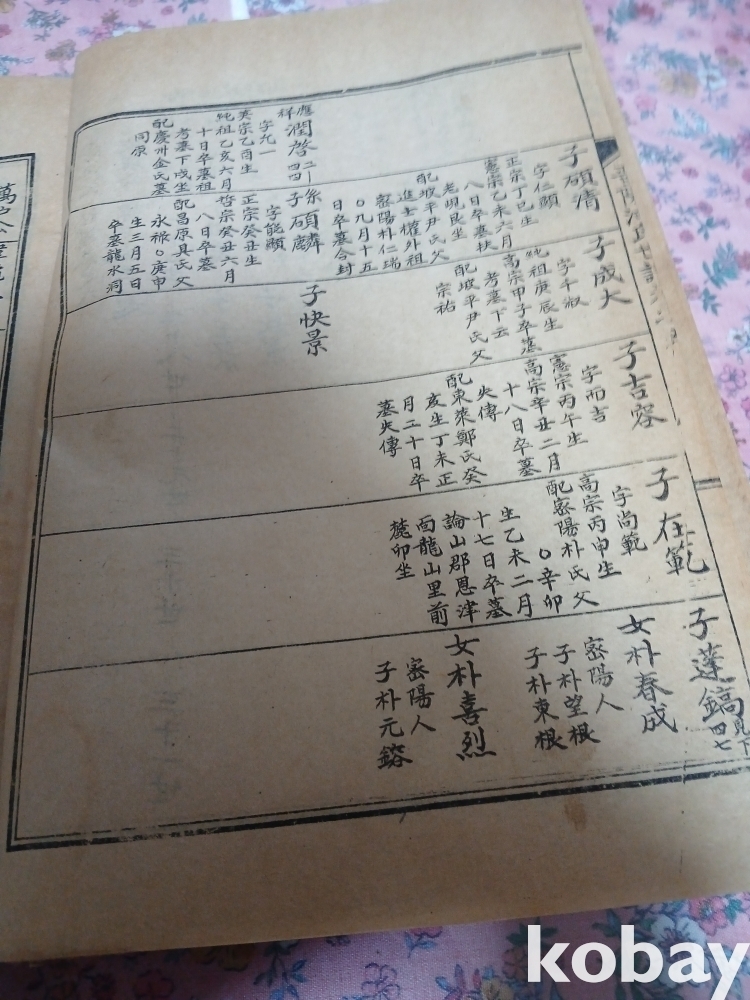 子碩淸
字仁顯
正宗丁巳生
憲宗乙未六月
八日卒墓枝
老峴艮坐
配坡平尹氏父
進士櫂外祖
密陽朴仁瑞
〇九月十五
日卒墓合封
系子碩麟
字能顯
正宗癸丑生
哲宗癸丑六月
八日卒墓
配昌原具氏父
永祿〇庚申
生三月五日
卒墓龍水洞
應祥
潤啓
字允一
英宗乙酉生
純祖乙亥六月
十日卒墓祖
考墓下戌坐
配慶州金氏墓
同原
子成大
字千淑
純祖庚辰生
高宗甲子卒墓
考墓下云
配坡平尹氏父
宗祐
子快景
子吉容
字而吉
憲宗丙午生
高宗辛丑二月
十八日卒墓
失傳
配東萊鄭氏癸
亥生丁未正
月二十日卒
墓失傳
子在範
字尙範
高宗丙申生
配密陽朴氏父
〇辛卯
生乙未二月
十七日卒墓
論山郡恩津
面龍山里前
麓卯坐
子蓮鎬
見下
四七
女朴春成
密陽人
子朴望根
子朴東根
女朴喜烈
密陽人
子朴元鎔
kobay